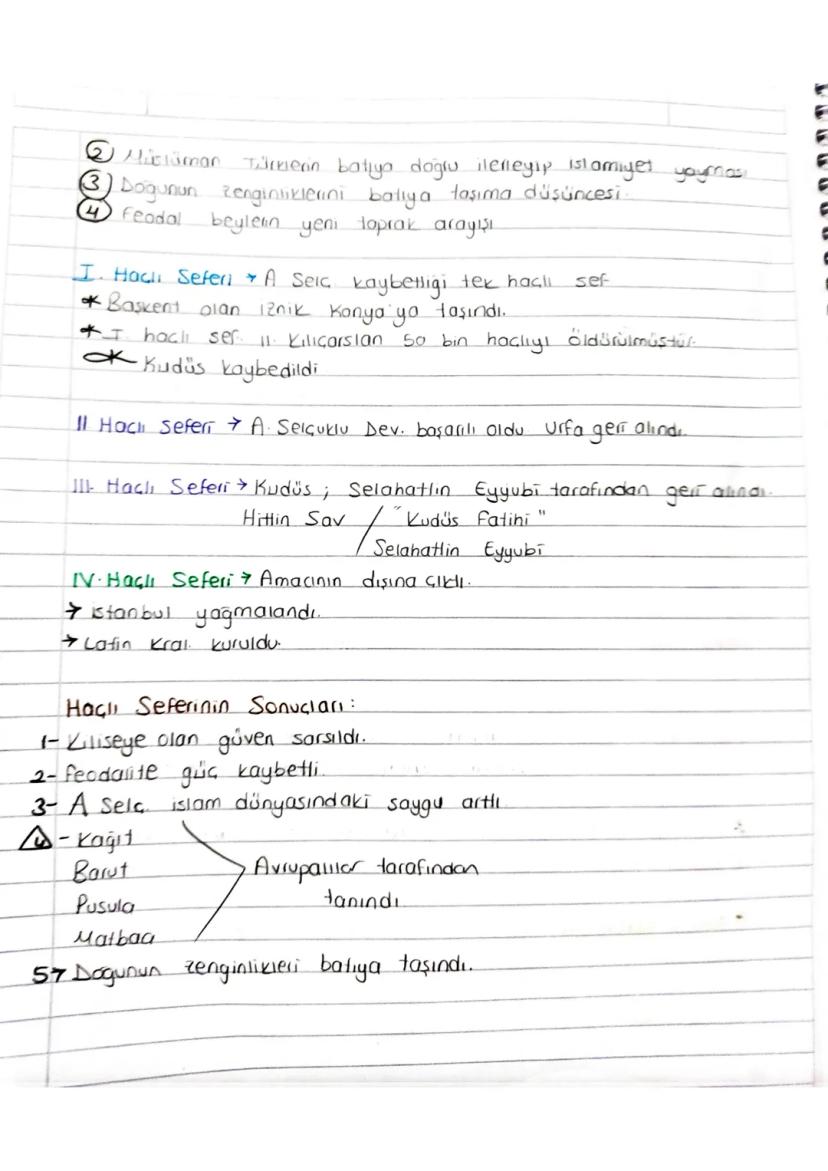 ② Müslüman Türklerin batıya doğru ilerleyip islamiyet yayması
③ Doğunun zenginliklerini batıya taşıma düşüncesi.
④ Feodal beylerin yeni toprak arayışı
I. Haçlı Seferi → A Selç kaybettiği tek haçlı sef
* Başkent olan iznik Konya'ya taşındı.
* I haçlı sef. II. Kılıçarslan 50 bin haçlıyı öldürülmüştür.
* Kudüs kaybedildi
II Haçlı Seferi → A. Selçuklu Dev. başarılı oldu Urfa geri alındı.
III- Haçlı Seferi → Kudüs ; Selahattin Eyyubi tarafından geri alındı.
Hittin Sav / "Kudüs Fatihi"
Selahattin Eyyubi
IV. Haçlı Seferi → Amacının dışına çıktı.
→ istanbul yağmalandı.
→ Latin Kral. kuruldu.
Haçlı Seferinin Sonuçları :
1- Kiliseye olan güven sarsıldı.
2- feodalite güç kaybetti.
3- A Selç islam dünyasındaki saygu arttı
4 - Kağıt
Barut Avrupalılar tarafından
Pusula tanındı
Matbaa
5→ Doğunun zenginlikleri batıya taşındı.